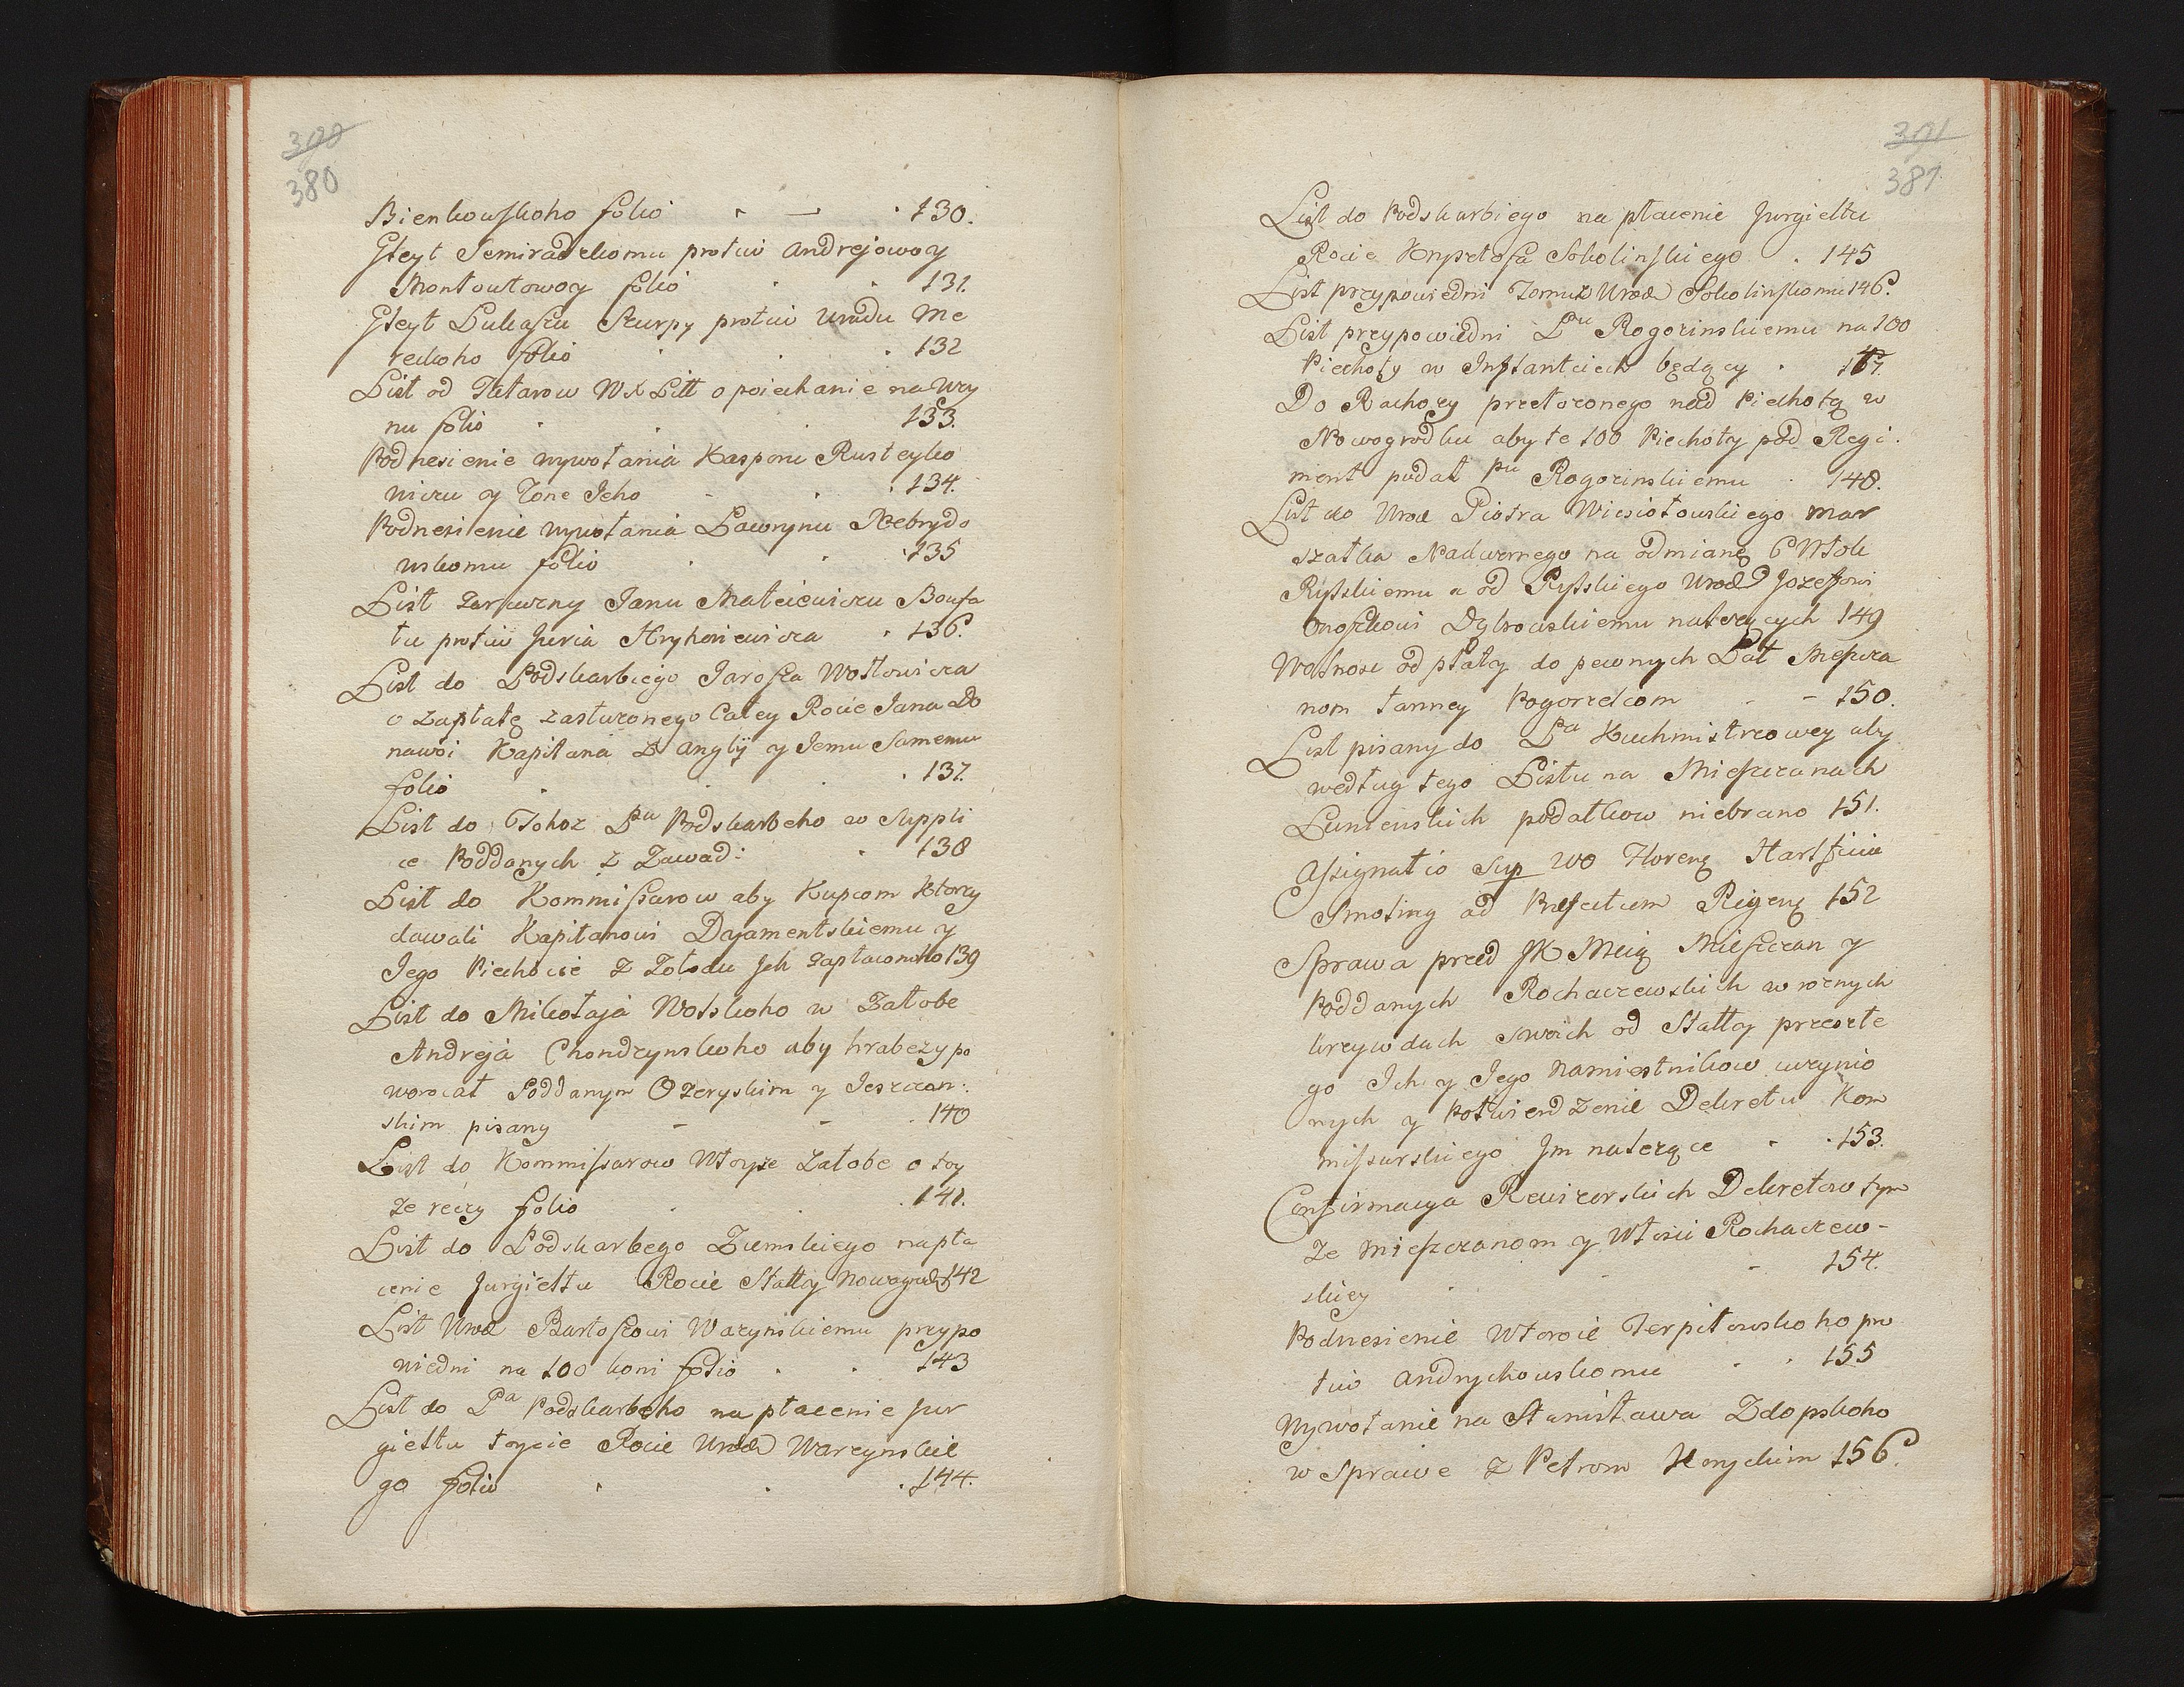 390
380
Bienkowskoho folio 130.
Gleyt Semiradzkomu protiw Andrejowoy
Montowtowoy folio 131.
Gleyt Lukaszu Skurpy protiw Uradu Me
reckoho folio 132
List od Tatarow WX Litt o poiechanie na Woy
nu folio 133.
Podnesienie wywołania Kasporu Rusteyko
wiczu y Żone Jeho 134.
Podnesienie wywołania Ławrynu Nebrydo
wskomu folio 135
List Zaruczny Janu Mateiewiczu Boufa
łu protiw Juria Hryhoriewicza 136.
List do Podskarbiego Jarosza Wołłowicza
o Zapłatę zasłużonego Całey Rocie Jana Do
nawoi Kapitana Z Anglÿ y Jemu Samemu
folio 137.
List do Tohoż Pᵃⁿ Podskarbeho w Suppli
ce Poddanych z Zawad: 138
List do Kommissarow aby Kupcom Ktorzy
dawali Kapitanowi Dajamentskiemu y
Jego Piechocie Z Żołodu Jch Zapłacono 139
List do Mikołaja Wolskoho w Załobe
Andreja Chondzynskoho aby hrabeży po
worocał Poddanym Ozeryskim y Jeszczan:
skim pisany 140
List do Kommissarow Wtoyże Załobe o toy
że reczy folio 141.
List do Podskarbego Ziemskiego na pła
cenie Jurgieltu Rocie Statty Nowogrod: 142
List Urod Bartoszowi Warzynskiemu przypo
wiedni na 100 koni folio 143
List do Pᵃ Podskarbeho na płacenie Jur
gieltu toycie Rocie Urod Warzynskie
go folio 144.
391
381
List do Podskarbiego na płacenie Jurgieltu
Rocie Krysztofa Sokolinskiego 145
List przypowiedni Tomuż Urod Sokolinskomu 146.
List przypowiedni Pᵘ Rogozinskiemu na 100
Piechoty w Inflantciech będący 147.
Do Rachozy przełożonego nad Piechotą w
Nowogrodku aby te 100 Piechoty pod Regi:
ment podał Pᵘ Rogozinskiemu 148.
List do Urod Piotra Wiesiołowskiego Mar
szałka Nadwornego na odmianę 6 Włok
Rylskiemu a od Rylskiego Urod Jozeffowi
Onoszkowi Dybowskiemu należących 149
Wolnosc od płaty do pewnych Lat Miescza
nom Łanney Pogorzelcom 150.
List pisany do Pᵃ Kuchmistrzowey aby
według tego Listu na Mieszczanach
Lunienskich podatkow niebrano 151.
Assignatio Sup WO Floreng Harlssiuu
Smoling ad Prefectum Rigeng 152
Sprawa przed JK Mcią Mieszczan y
Poddanych Rochaczewskich w roznych
krzywdach swoich od Statty przeszłe
go Ich y Jego Namiestnikow uczynio
nych y Potwierdzenie Dekretu Kom
missarskiego Jm należące 153.
Confirmacya Rewizorskich Dekretow tym
że Mieszczanom y Włosci Rochaczew-
skiey 154.
Podnesienie Wtoroie Terpiłowskoho pro
tiw Andrychowskomu 155
Wywołanie na Stanisława Zdopskoho
w Sprawe z Petrom Henyckim 156.